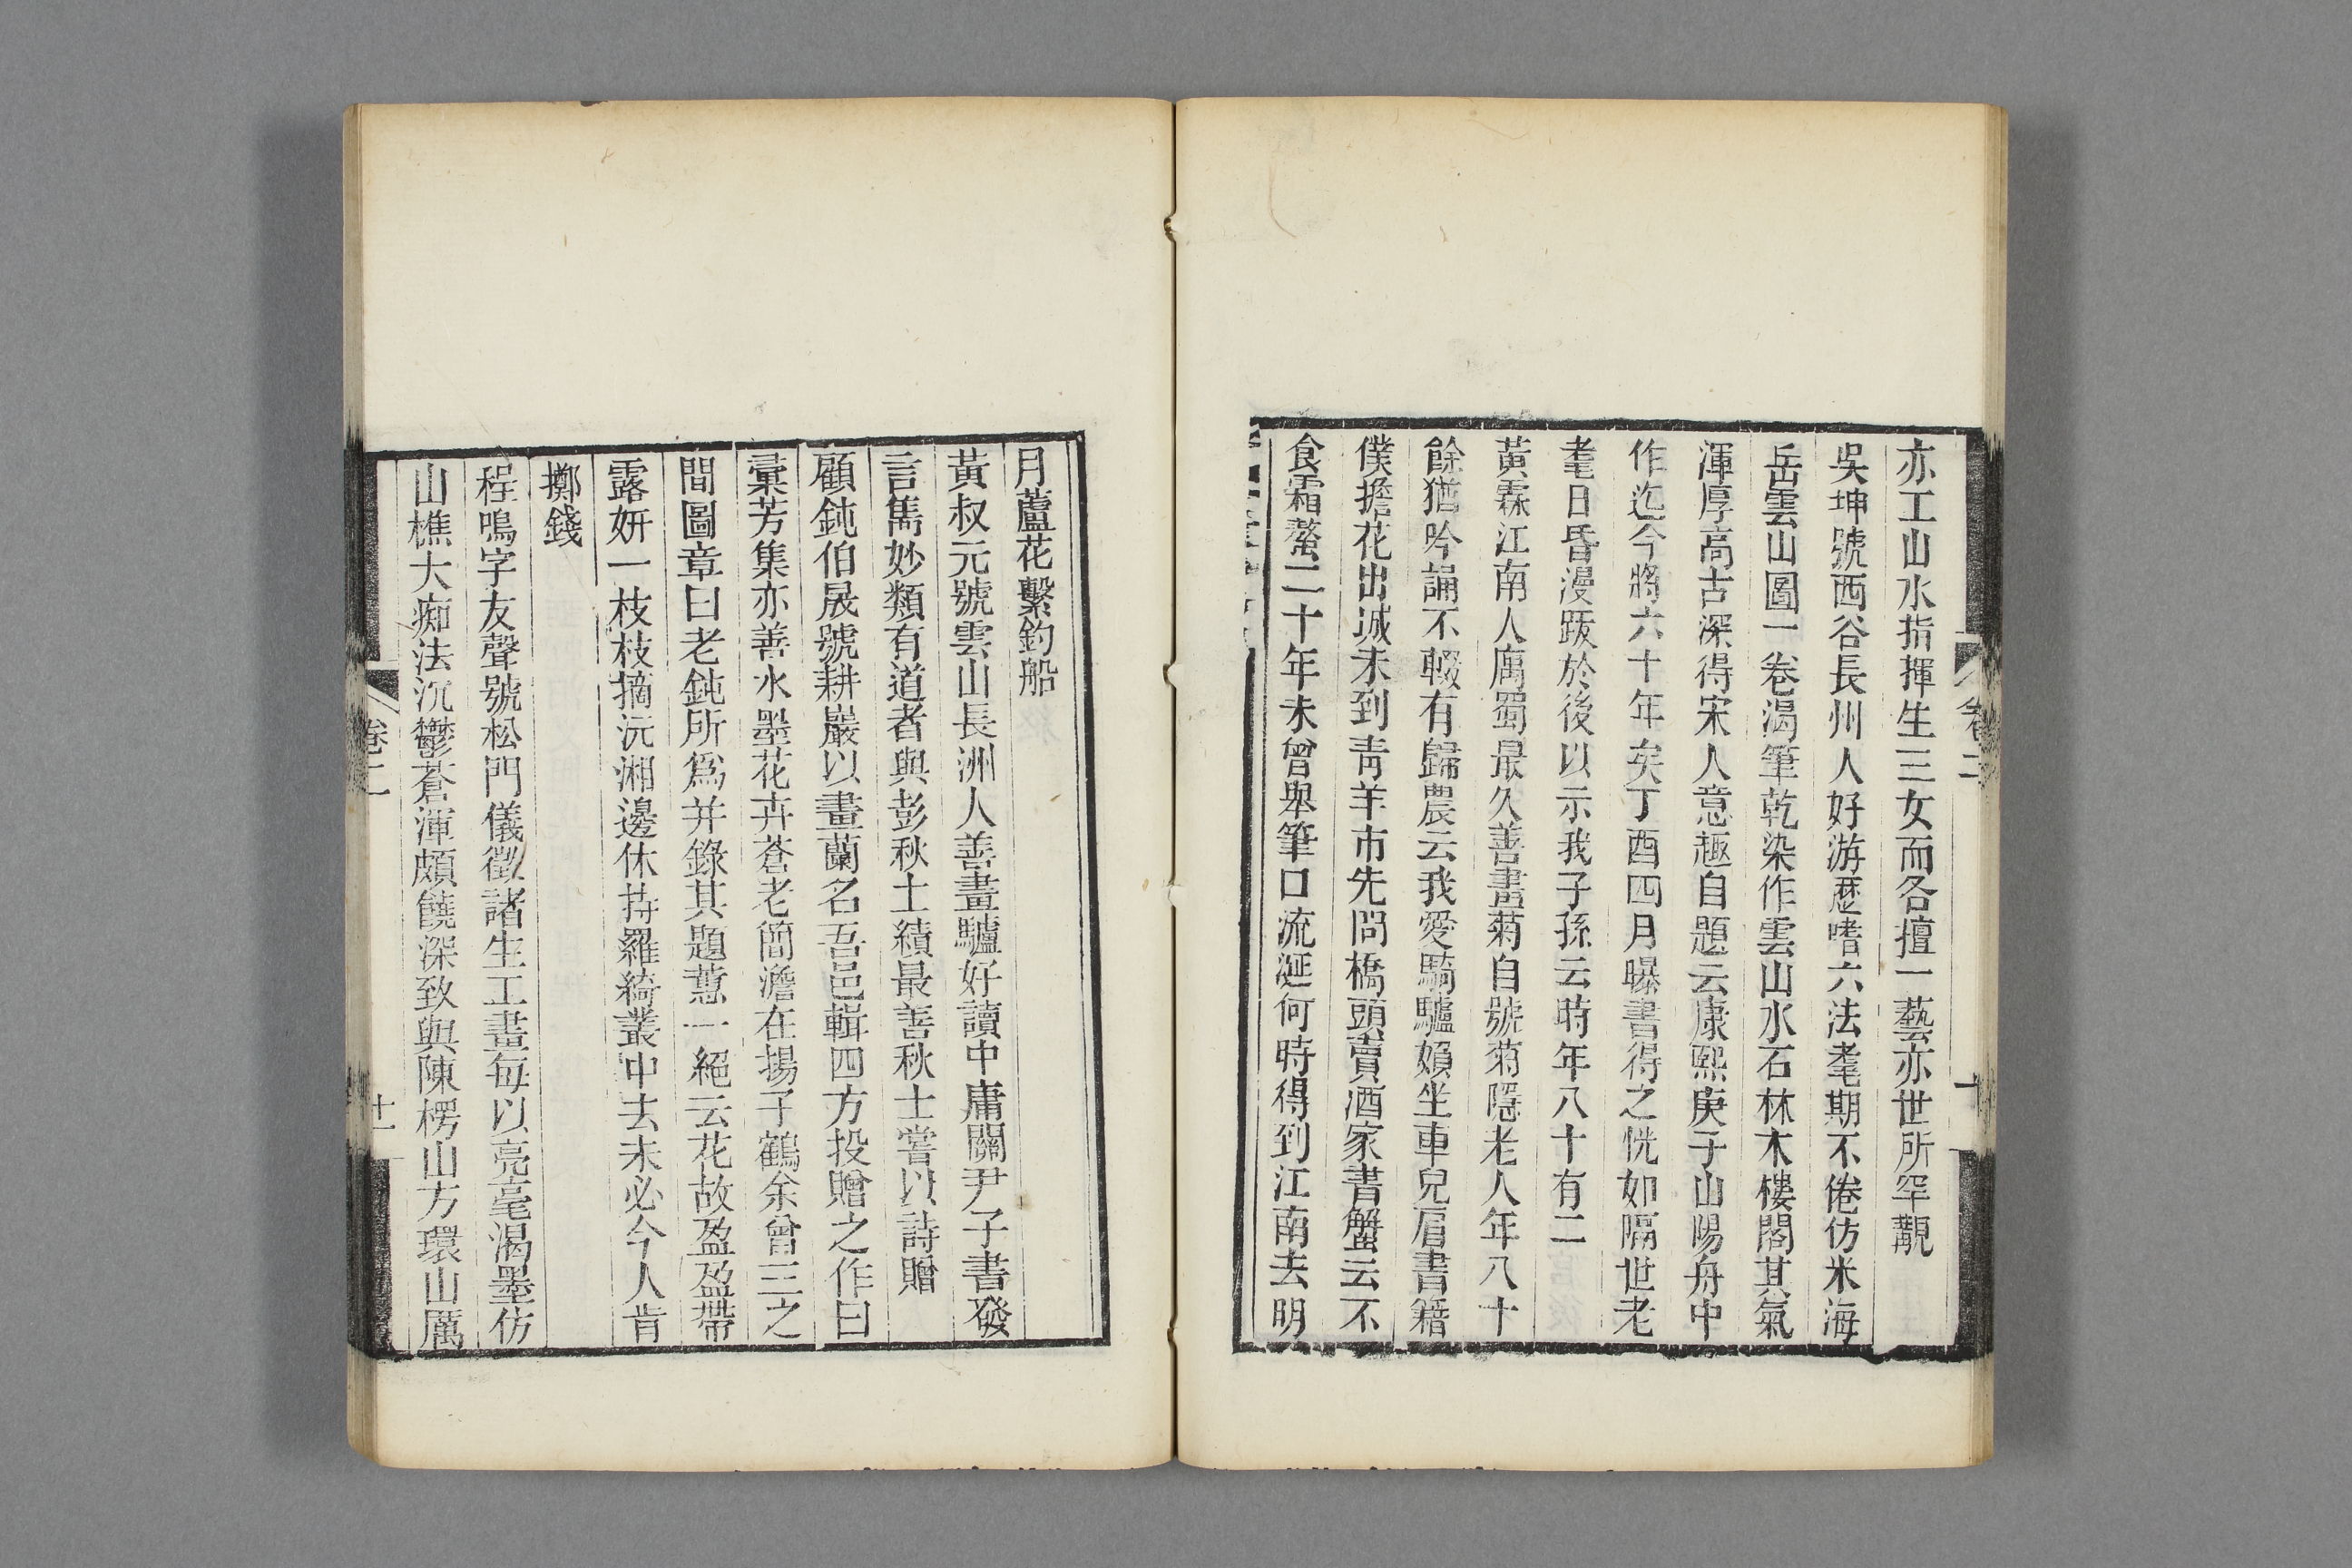 亦工山水指揮生三女而各擅一藝亦世所罕覯
吳坤號西谷長州人好游歷嗜六法耄期不倦仿米海
岳雲山圖一卷渴筆乾染作雲山水石林木樓閣其氣
渾厚高古深得宋人意趣自題云康熙庚子山陽舟中
作迄今將六十年矣丁酉四月曝書得之恍如隔世老
耄日昏漫跋於後以示我子孫云時年八十有二
黃霖江南人寓蜀最久善畫菊自號菊隱老人年八十
餘猶吟誦不輟有歸農云我愛騎驢嬾坐車兒肩書籍
僕擔花出城未到青羊市先問橋頭賣酒家書蟹云不
食霜螯二十年未曾舉筆口流涎何時得到江南去明
卷二
十
月蘆花繫釣船
黃叔元號雲山長洲人善畫驢好讀中庸關尹子書發
言雋妙類有道者與彭秋士績最善秋士嘗以詩贈
顧鈍伯晟號耕巖以畫蘭名吾邑輯四方投贈之作曰
彙芳集亦善水墨花卉蒼老簡澹在揚子鶴余曾三之
間圖章曰老鈍所爲并錄其題蕙一絕云花故盈盈帶
露妍一枝枝摘沅湘邊休持羅綺叢中去未必今人肯
擲錢
程鳴字友聲號松門儀徵諸生工畫每以亮毫渴墨仿
山樵大痴法沉鬱蒼渾頗饒深致與陳楞山方環山厲
卷二
十一